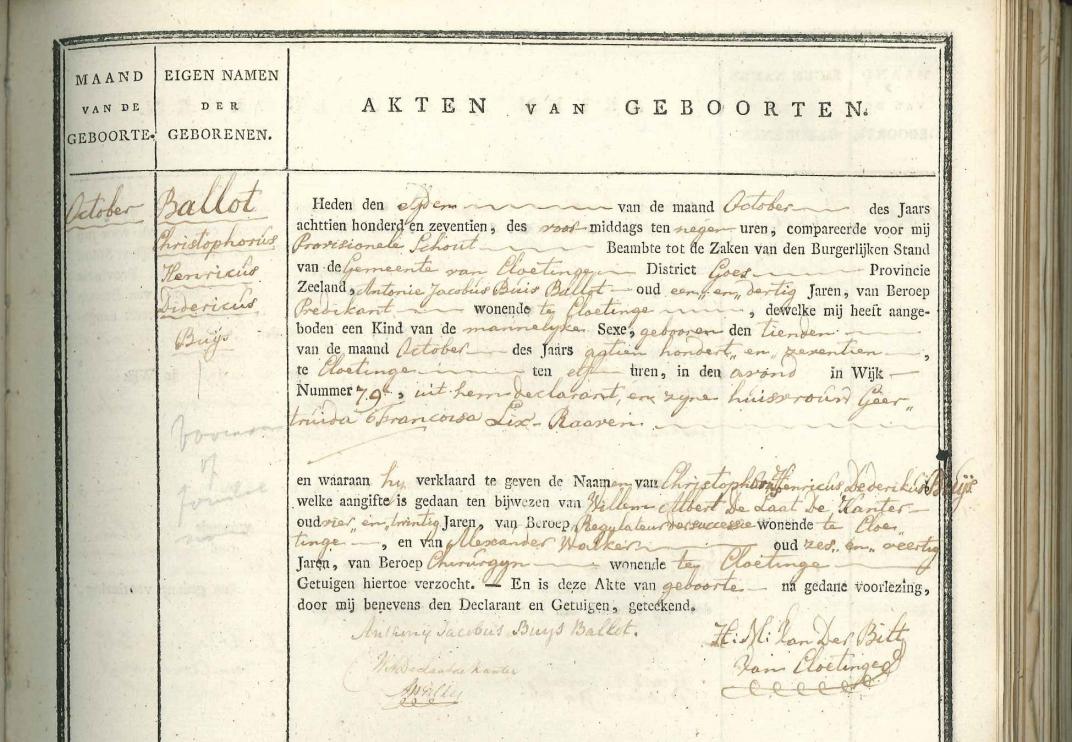 MAAND
VAN DE
GEBOORTE.
EIGEN NAMEN
DER
GEBORENEN.
AKTEN VAN GEBOORTEN.
October
Ballot
Christophorus
Henricus
Didericus
Buijs
Heden den elfden van de maand October des Jaars
achttien honderd en zeventien, des voor middags ten negen uren, compareerde voor mij
Provisionele Schout Beambte tot de Zaken van den Burgerlijken Stand
van de Gemeente van Cloetinge District Goes Provincie
Zeeland, Antonie Jacobus Buis Ballot oud een en dertig Jaren, van Beroep
Predikant wonende te Cloetinge, dewelke mij heeft aange-
boden een Kind van de mannelyke Sexe, gebooren den tienden
van de maand October des Jaars agtien hondert en zeventien,
te Cloetinge ten elf uren, in den avond in Wijk
Nummer 79, uit hem declarant, en zyne huisvrouw Geer„
truida Francoisa Lix-Raaven
voornaam
of
familie
naam
en waaraan hy verklaard te geven de Naamen van Christophorus Henricus Dederikus Buijs
welke aangifte is gedaan ten bijwezen van Willem Albert De Laat De Kanter
oud vier en twintig Jaren, van Beroep Regulateur der successie wonende te Cloe
tinge, en van Alexander Walker oud zes en veertig
Jaren, van Beroep Chirurgyn wonende te Cloetinge
Getuigen hiertoe verzocht. — En is deze Akte van geboorte na gedane voorlezing,
door mij benevens den Declarant en Getuigen, geteekend.
Anthony Jacobus Buys Ballot.
H. M. Van Der Bilt
van Cloetinge
de Laat de Kanter